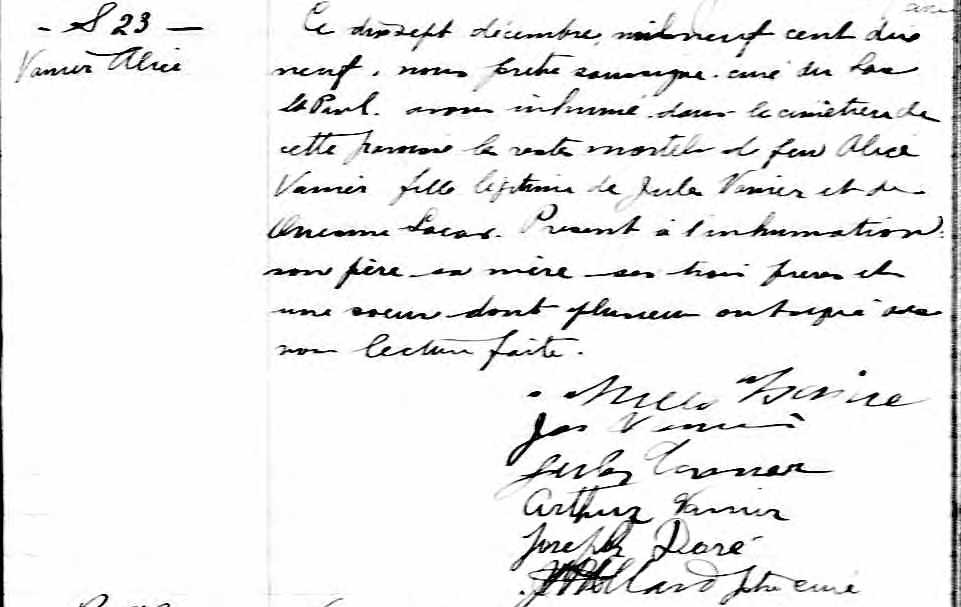 - S 23 -
Vanier Alice
Ce dixsept décembre, mil neuf cent dix
neuf, nous prêtre soussigné curé du Lac
St Paul. avons inhumé dans le cimetière de
cette paroisse le reste mortels de feu Alice
Vanier fille légitime de Jules Vanier et de
Present à l'inhumation,
son père sa mère ses trois freres et
une soeur dont plusieurs ont signé avec
nous lecture faite.
Jos Vanier
Arthur Vanier
Joseph Doré
ptre curé